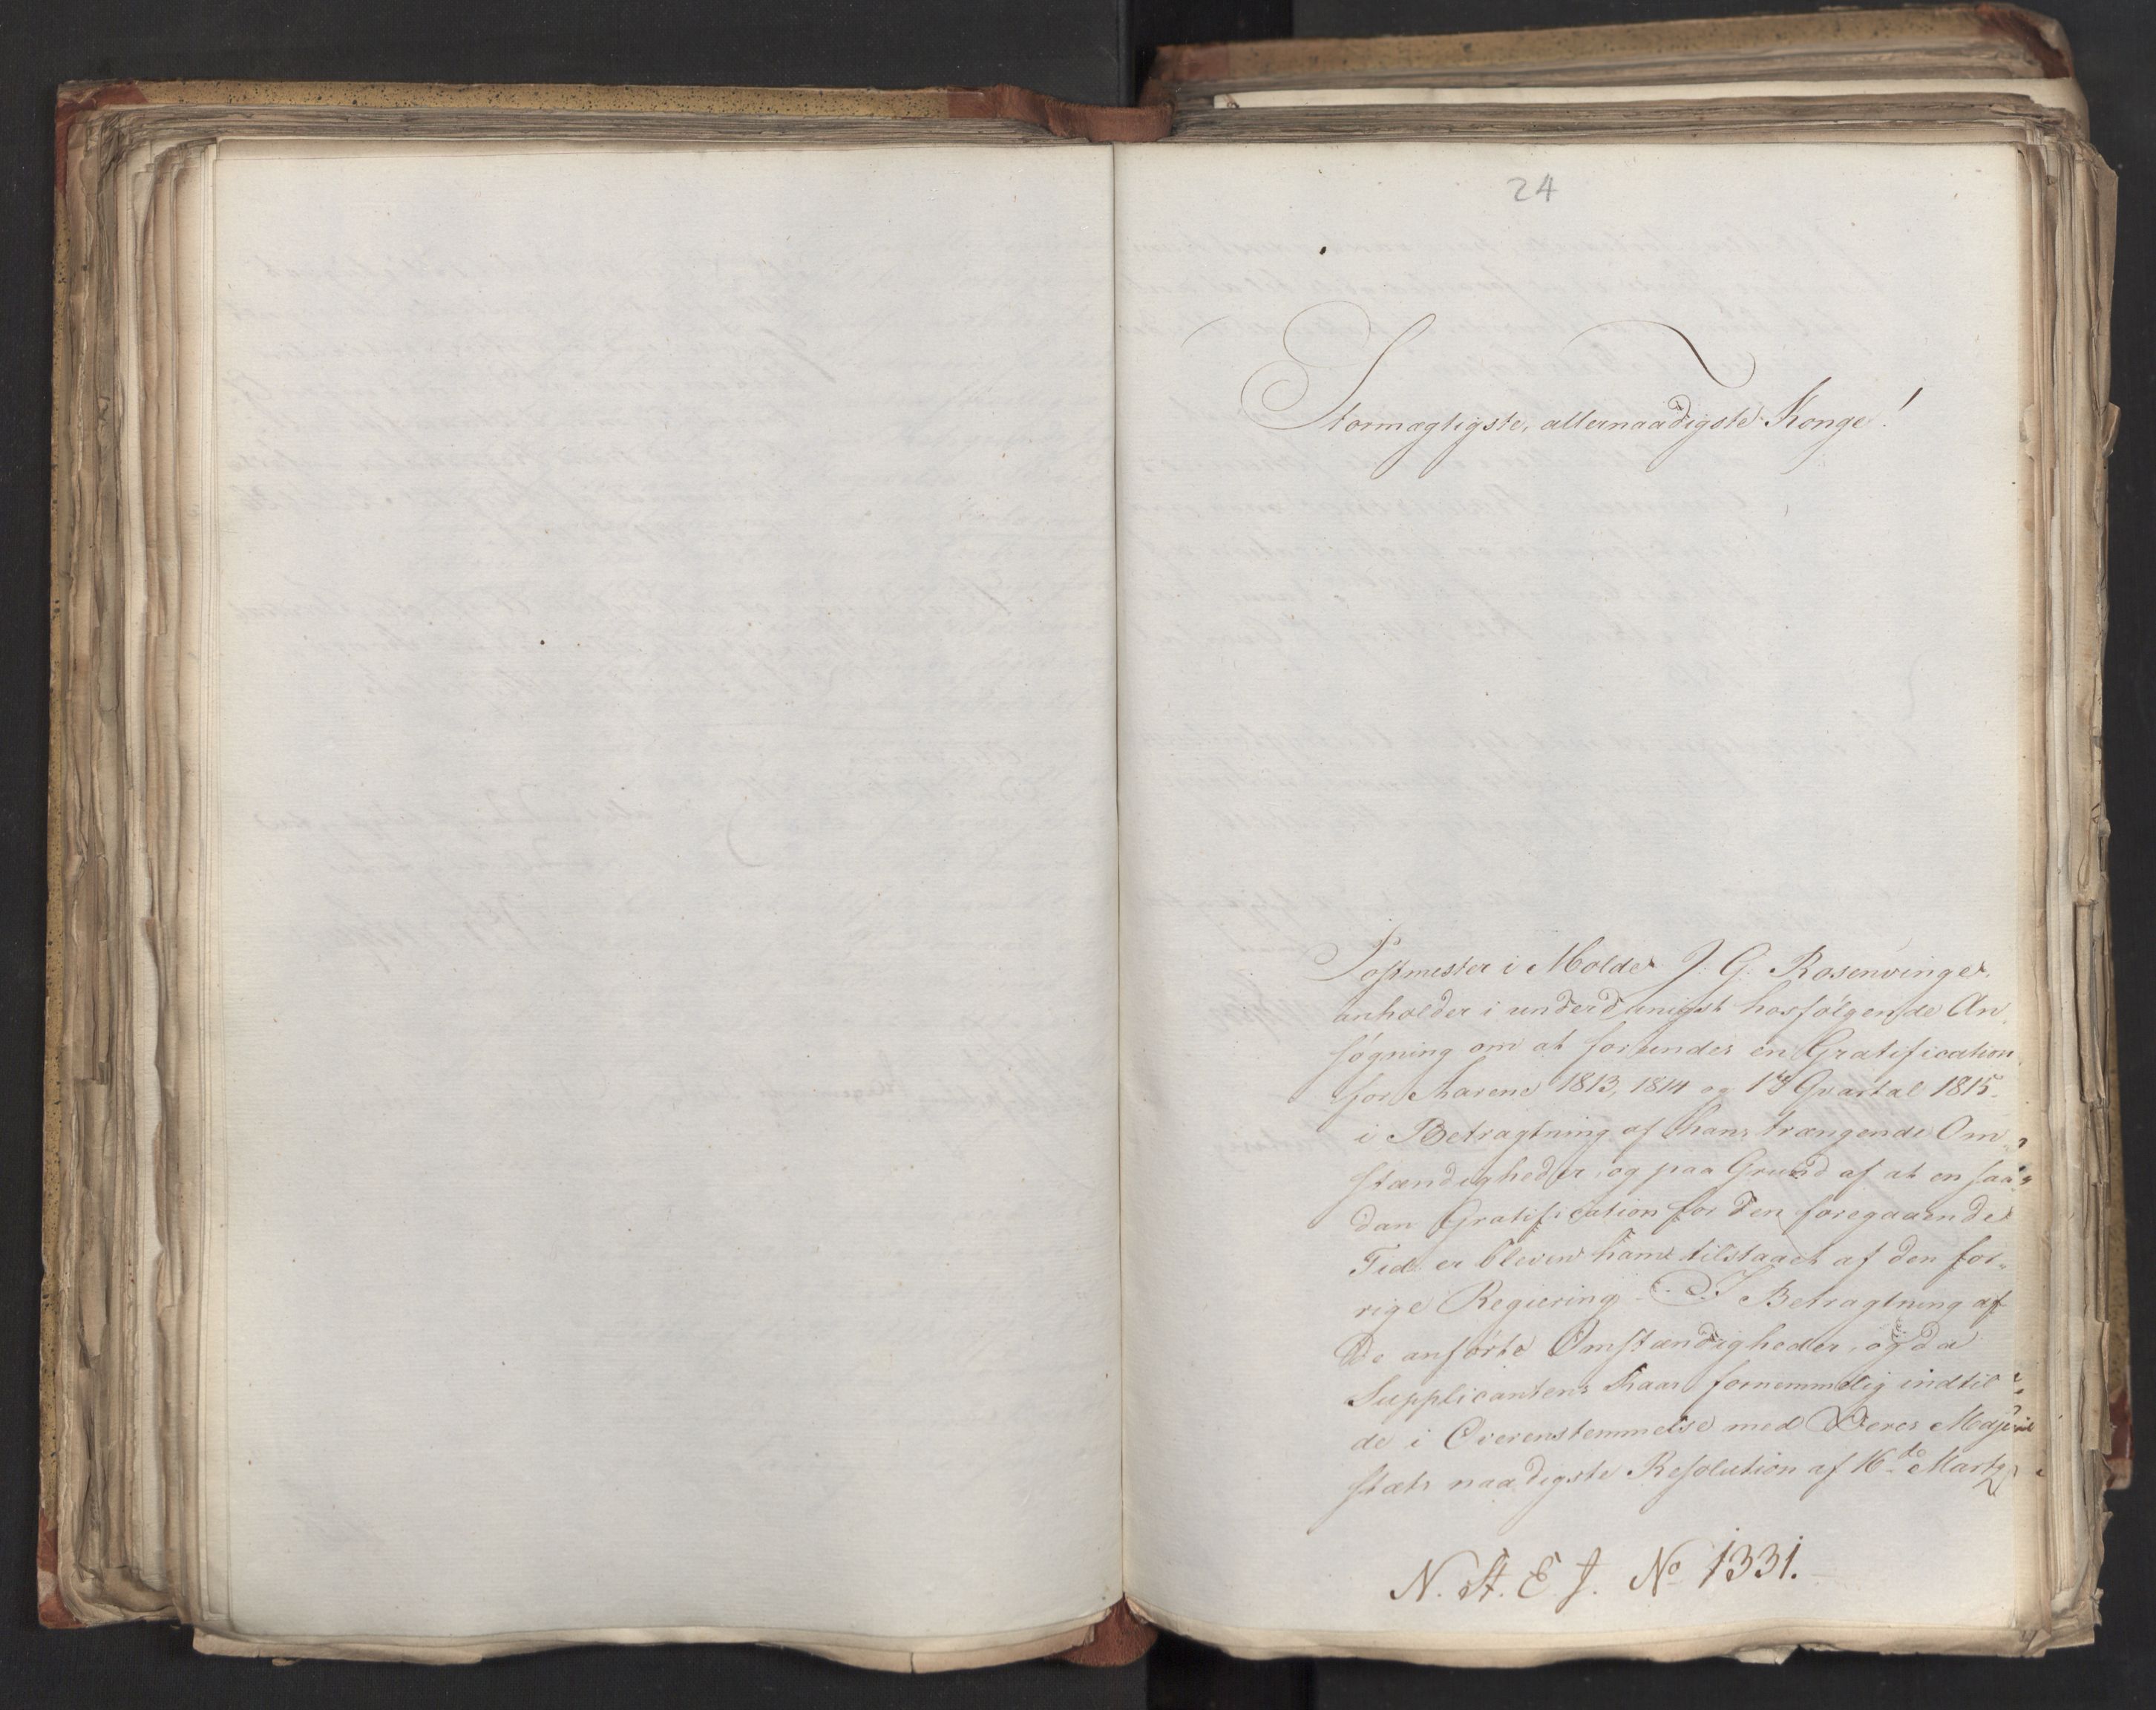 24
Stormægtigste, allernaadigste Konge!
Postmester i Molde J. G. Rosenvinge
anholder i underdanigst hosfølgende An
søgning om at forundes en Gratification
for Aarene 1813, 1814 og 1ste Qvartal 1815
i Betragtning af hans trængende Om
stændigheder, og paa Grund af at en saa„
dan Gratification for den foregaaende
Tid er bleven ham tilstaaet af den for„
rige Regiering. I Betragtning af
de anførte Omstændigheder, og da
Supplicanten har fornemmelig indtil
de i Overenstemmelse med Deres Maje
stæts naadigste Resolution af 16de Marts
N. St. E. J. No 1331.